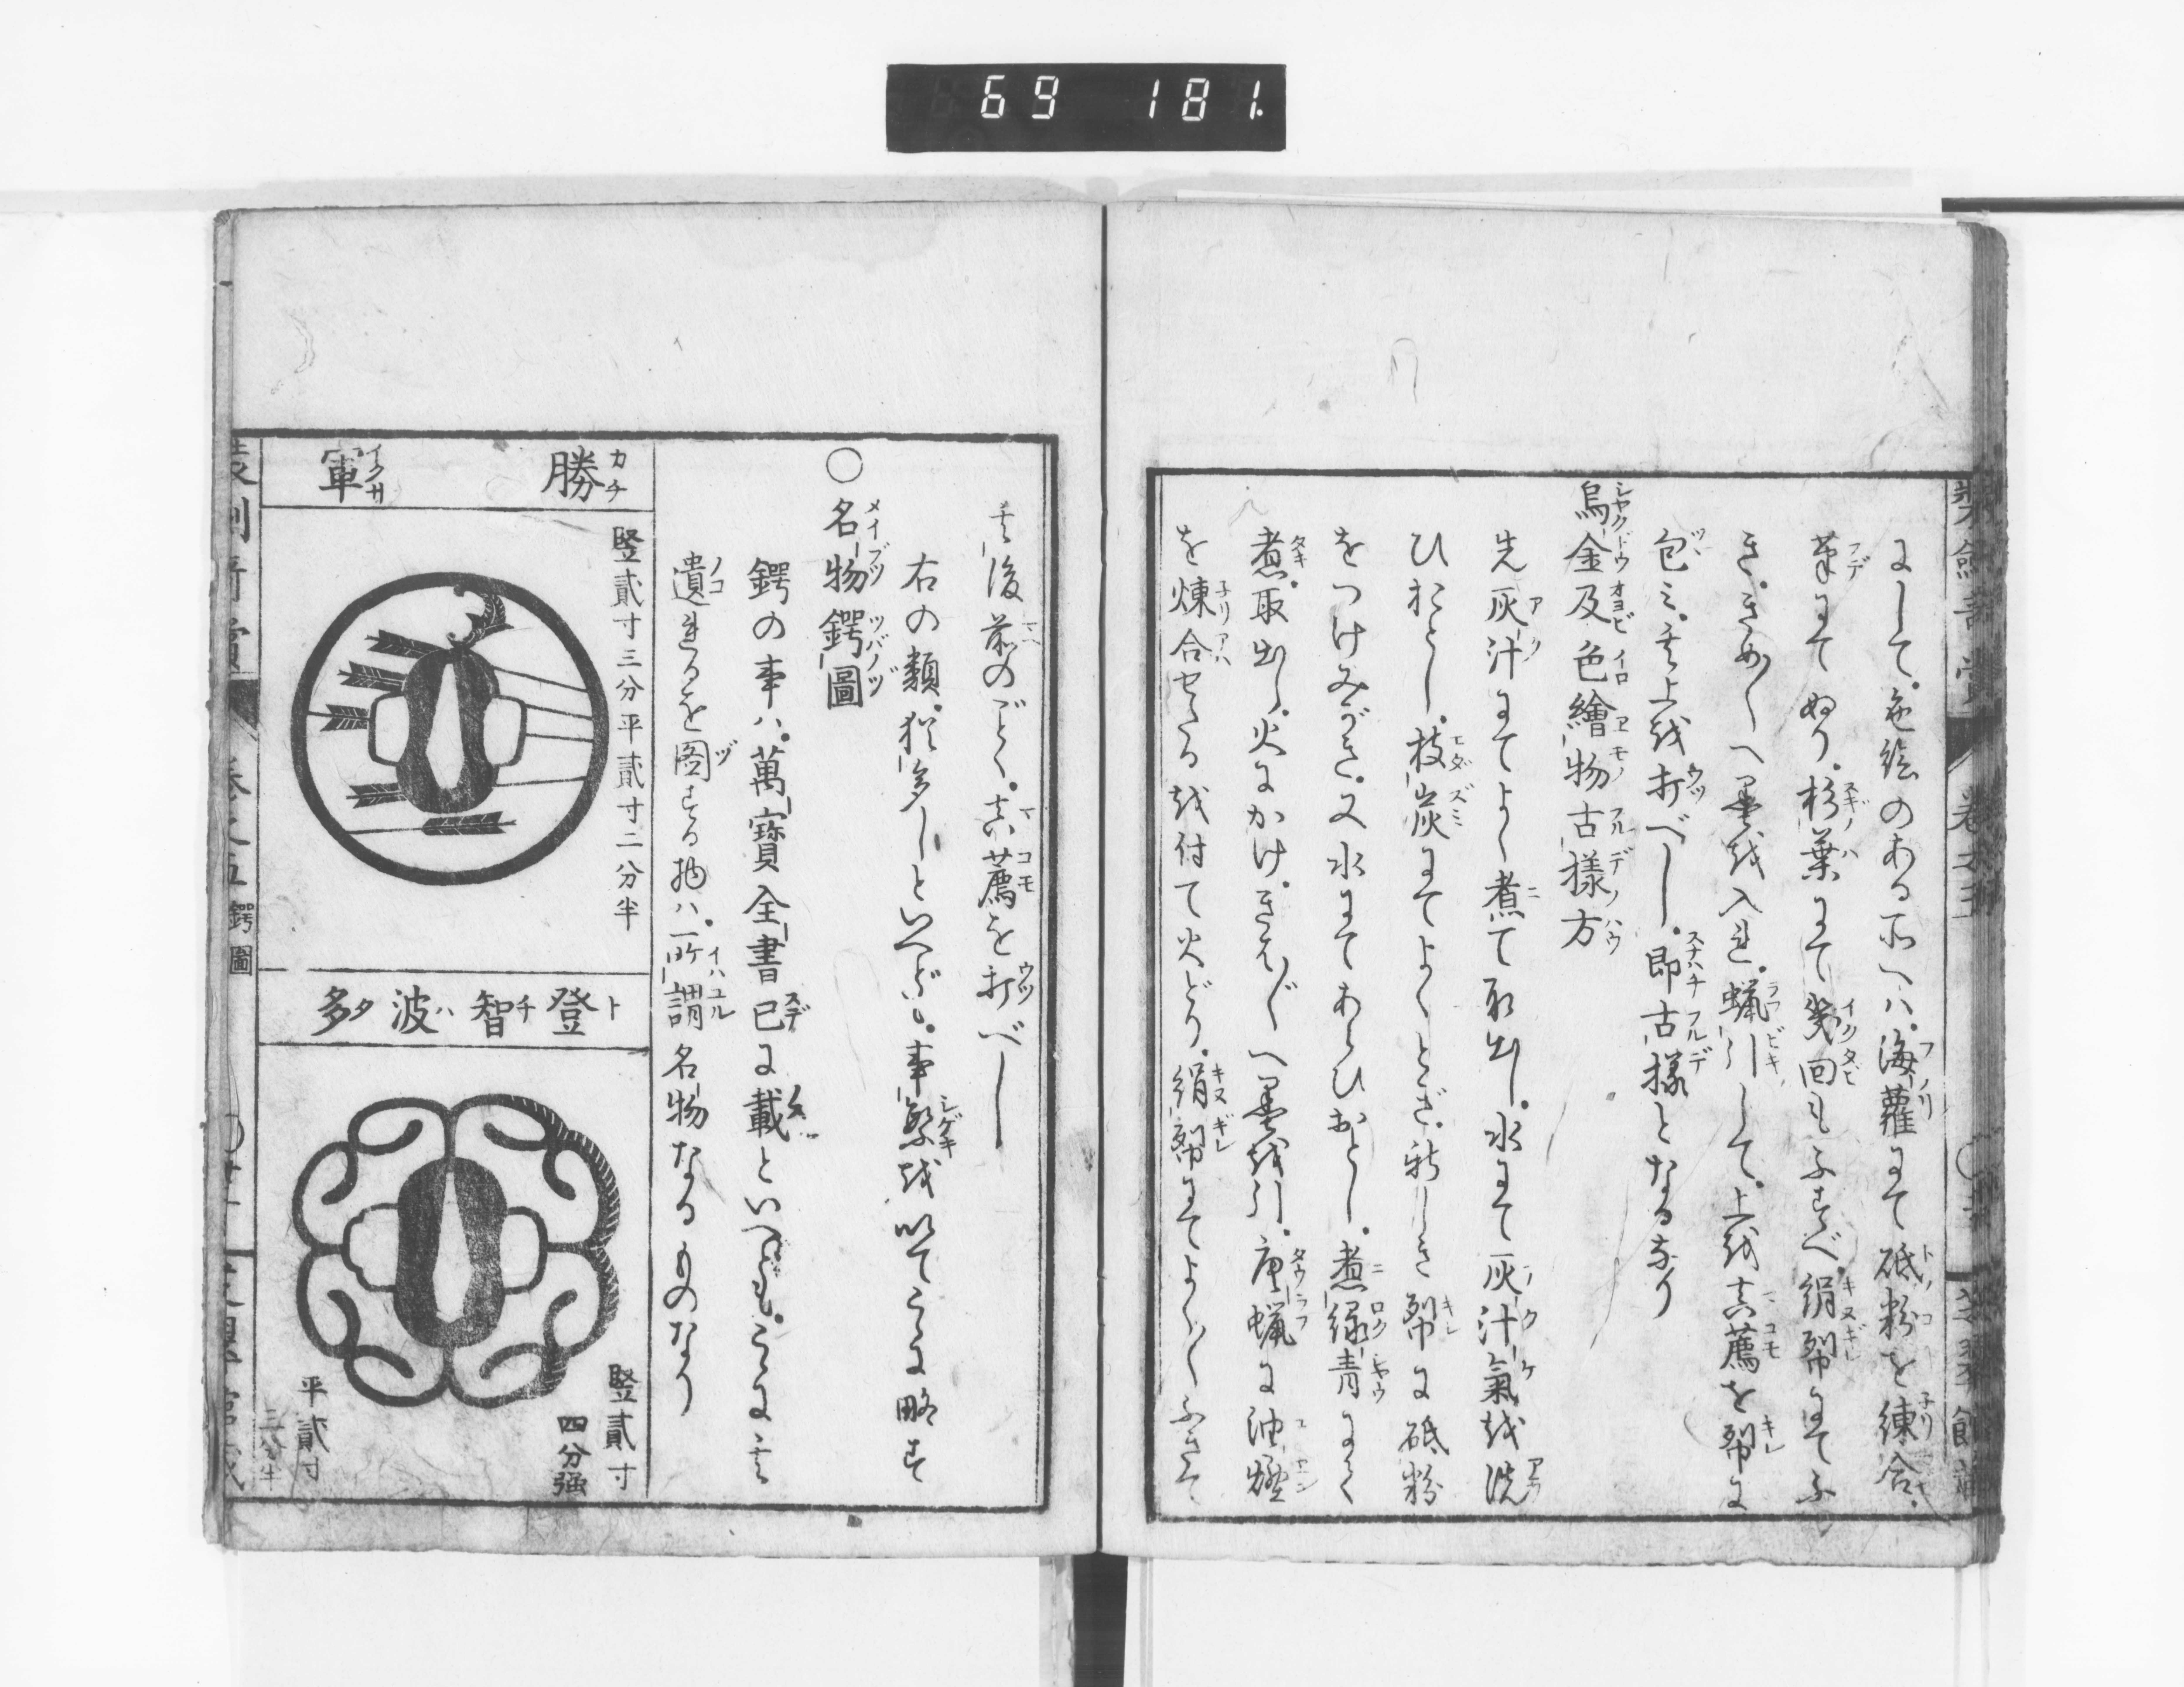 69 181.
にして。色絵のある所へハ。海蘿にて砥粉を練合。
筆にてぬり。杉葉にて幾回もふすべ。絹幣にてふ
き。きめ〱へ墨を入れ。蝋引して。上を真薦を幣に
包ミ。其上を打べし。即古様となるなり
烏金及色繪物古様方
先灰汁にてよく煮て取出し。水にて灰汁氣を洗
ひおとし。枝炭にてよくとぎ。新しき幣に砥粉
をつけみがき。又水にてあらひおとし。煮緑青にて
煮。取出し。火にかけ。きえ〲へ墨を引。唐蝋に油煙
を煉合せたるを付て火どり。絹幣にてよく〱ふきて
其後前のごとく。真薦を打べし
右の類。猶多しといへども。事繁を以てこゝに略す
○名物鍔圖
鍔の事ハ。萬寶全書已に載といへども。こゝに其
遺れるを圖する物ハ。所謂名物なるものなり
勝軍
竪貳寸三分平貳寸二分半
登智波多
竪貳寸
四分强
平貳寸
三分半
卷之五 鍔圖